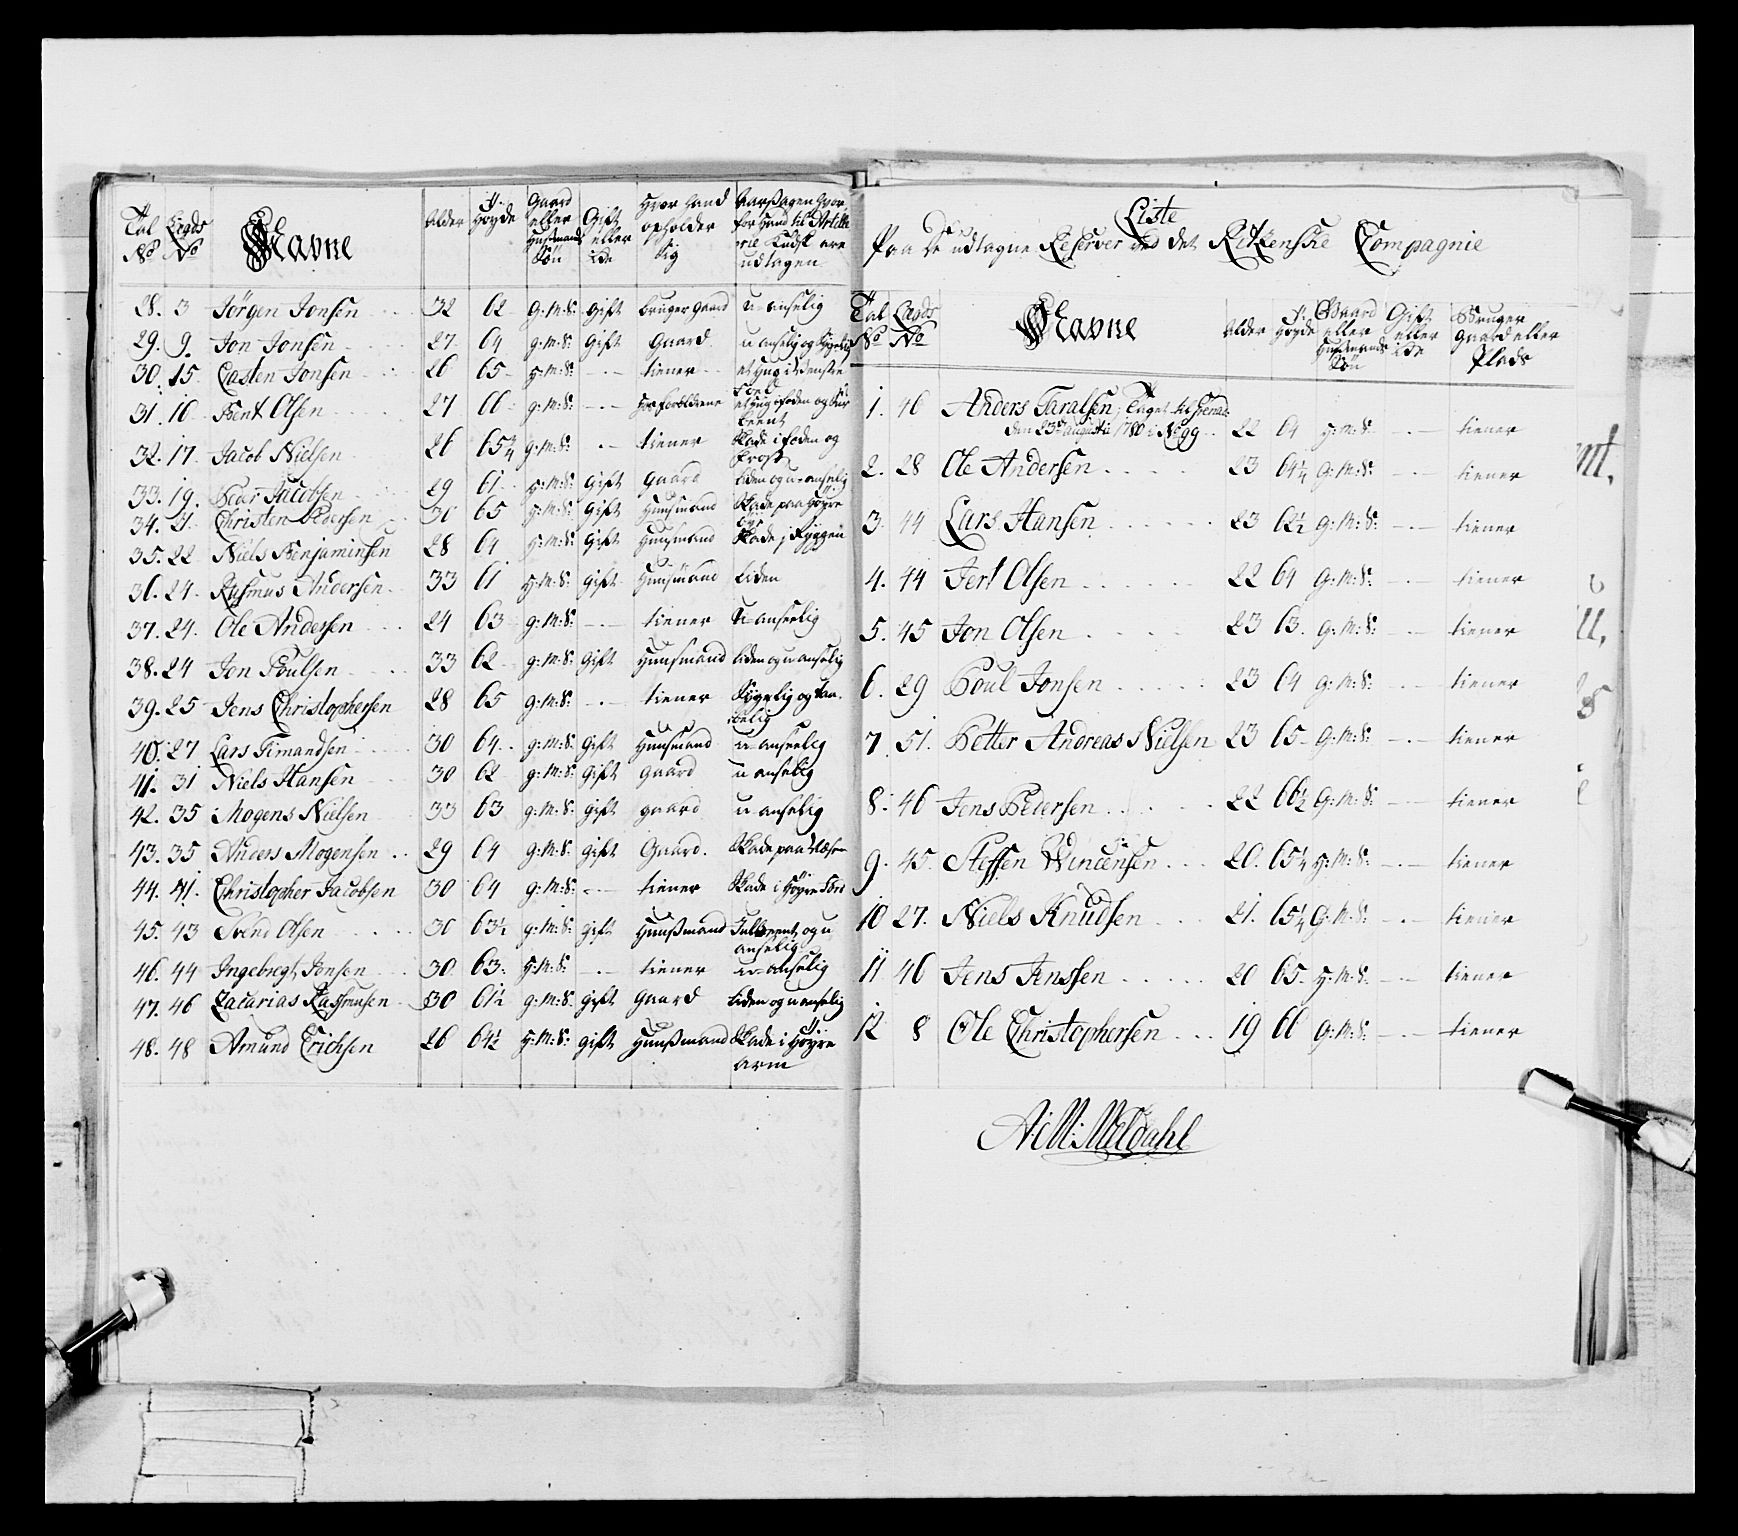 Tal No Legds No Navne Alder Høyde Gaard eller Huusmands Søn Gift eller Ide Hvor Hand opholder Sig Aarsagen hvorfor Hand til Artillerie Kudsk ere udtagen
28. 3 Jørgen Jonsen 32 62 G:M:S: Gift bruger Gaard u-anselig
29. 9. Jon Jonsen 27 64 g:M:S: Gift Gaard u anselig og
30. 15 Casten Jonsen 26 65 H:M:S: - - tiener
31. 16 Bent Olsen 27 66 g:M:S: - - Hos forældrene
32. 17 Jacob Nielsen 26 65 3/4 g:M:S: - - tiener Skade i foden og Krop
33. 19. Peder Jacobsen 29 61 H:M:S: Gift Gaard liden og u-anselig
34. 21. Christen Pedersen 36 65 H:M:S: Gift Huusmand Skade paa Høyre
35. 22 Niels Benjaminsen 28 64 H:M:S: Gift Huusmand Skade j Ryggen
36. 24 Rasmus Andersen 33 61 H:M:S: Gift Huusmand Liden
37. 24. Ole Andersen 24 63 g:M:S: - - tiener U-anseelig
38. 24 Jon Poulsen 33 62 g:M:S: Gift Huusmand liden og u anselig
39. 25 Jens Christophersen 28 65 g:M:S: - - tiener Sygelig og
40. 27 Lars Simandsen 30 64 g:M:S: Gift Huusmand u-anseelig
41. 31 Niels Hansen 30 62 g:M:S: Gift Gaard u anselig
42. 35 Mogens Nielsen 33 63 g:M:S: Gift gaard u-anselig
43. 35 Anders Mogensen 29 64 g:M:S: gift Gaard. Skade paa
44. 41. Christopher Jacobsen 30 64 g:M:S: - - tiener Skade i Høyre
45. 43 Svend Olsen 30 63 1/2 g:M:S: gift Huusmand og u anselig
46. 44 Ingebregt Jonsen 30 63. H:M:S: - - tiener u-anselig
47. 46 Zacarias Rassmusen 30 61 1/2 g:M:S: gift Gaard Liden og u anselig
48. 48 Amund Erichsen 26 64 1/2 H:M:S: gift Huusmand Skade i Høyre arm
Liste
Paa De udtagne Reserver ved det Ritzenske Compagnie
Tal No Legds No Navne Alder Høyde Gaard eller Huusmands Søn Gift eller Ide Bruger Gaard eller Plads
1. 46 Anders Taralsen, Taget til
Den 23de Augustii 1780 i N: 99 22 64 H:M:S: - - tiener
2. 28 Ole Andersen 23 64 1/4 G:M:S: - - tiener
3. 44 Lars Hansen 23 62 1/2 G:M:S: - - tiener
4. 44 Jert Olsen 22 64 G:M:S: - - tiener
5. 45 Jon Olsen 23 63. G:M:S: - - tiener
6. 29 Poul Jonsen 23 64 G:M:S: - - tiener
7. 51. Petter Andreas Nielsen 23 65 G:M:S: - - tiener
8. 46 Jens Pedersen 22 66 1/2 G:M:S: - - tiener
9. 45 Steffen Wincensen 20. 65 1/4 H:M:S: - - tiener
10 27. Niels Knudsen 21. 65 1/4 G:M:S: - - tiener
11 46 Jens Jenssen 20 65 H:M:S: - - tiener
12 8 Ole Christophersen 19 66 G:M:S: - - tiener
A:M: Meldahl